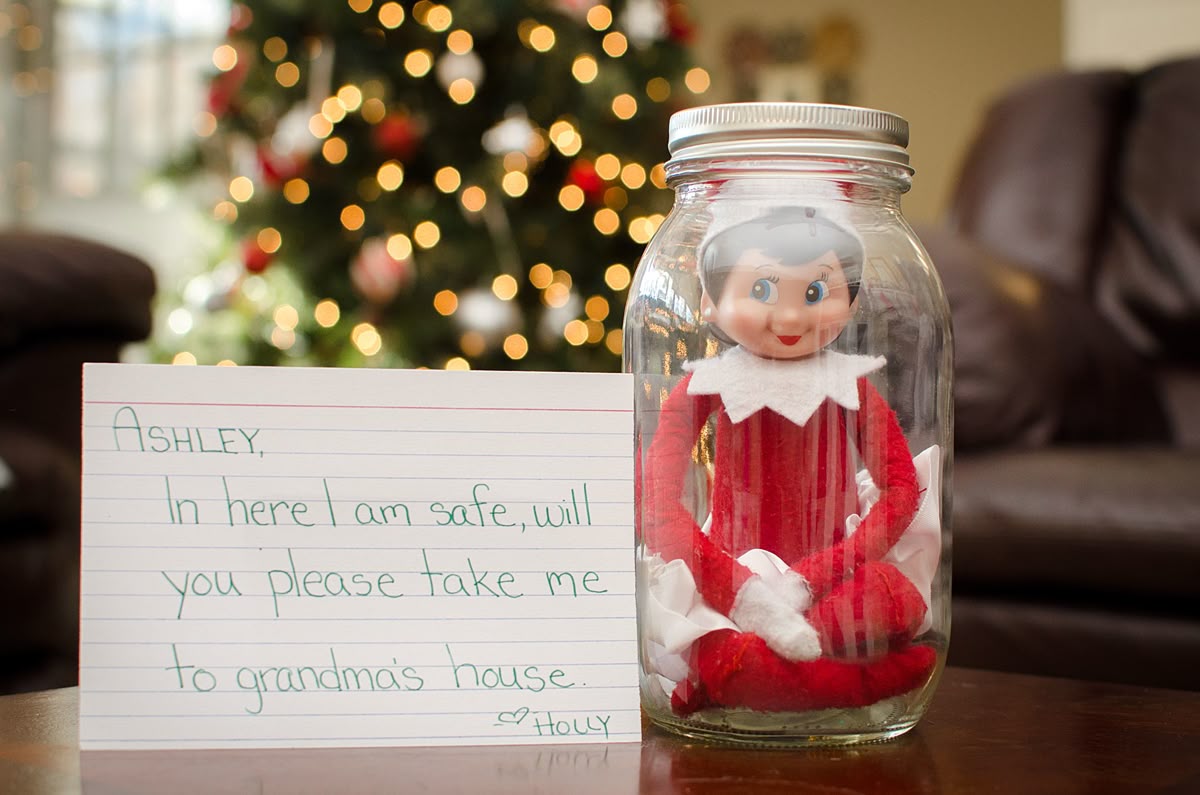 ASHLEY,
In here I am safe, will
you please take me
to grandma's house.
♡ HOLLY